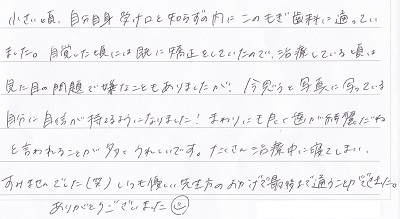 小さい頃、自分自身受け口と知らずの内にこのもぎ歯科に通ってい
ました。自覚した頃には既に矯正をしていたので、治療している頃は
見た目の問題で嫌なこともありましたが、今思うと写真に写っている
自分に自信が持てるようになりました！まわりにも良く歯が綺麗だね
と言われることが多々うれしいです。たくさん治療中に寝てしまい、
すみませんでした(笑)いつも優しい先生方のおかげで最後まで通うことができました。
ありがとうございました